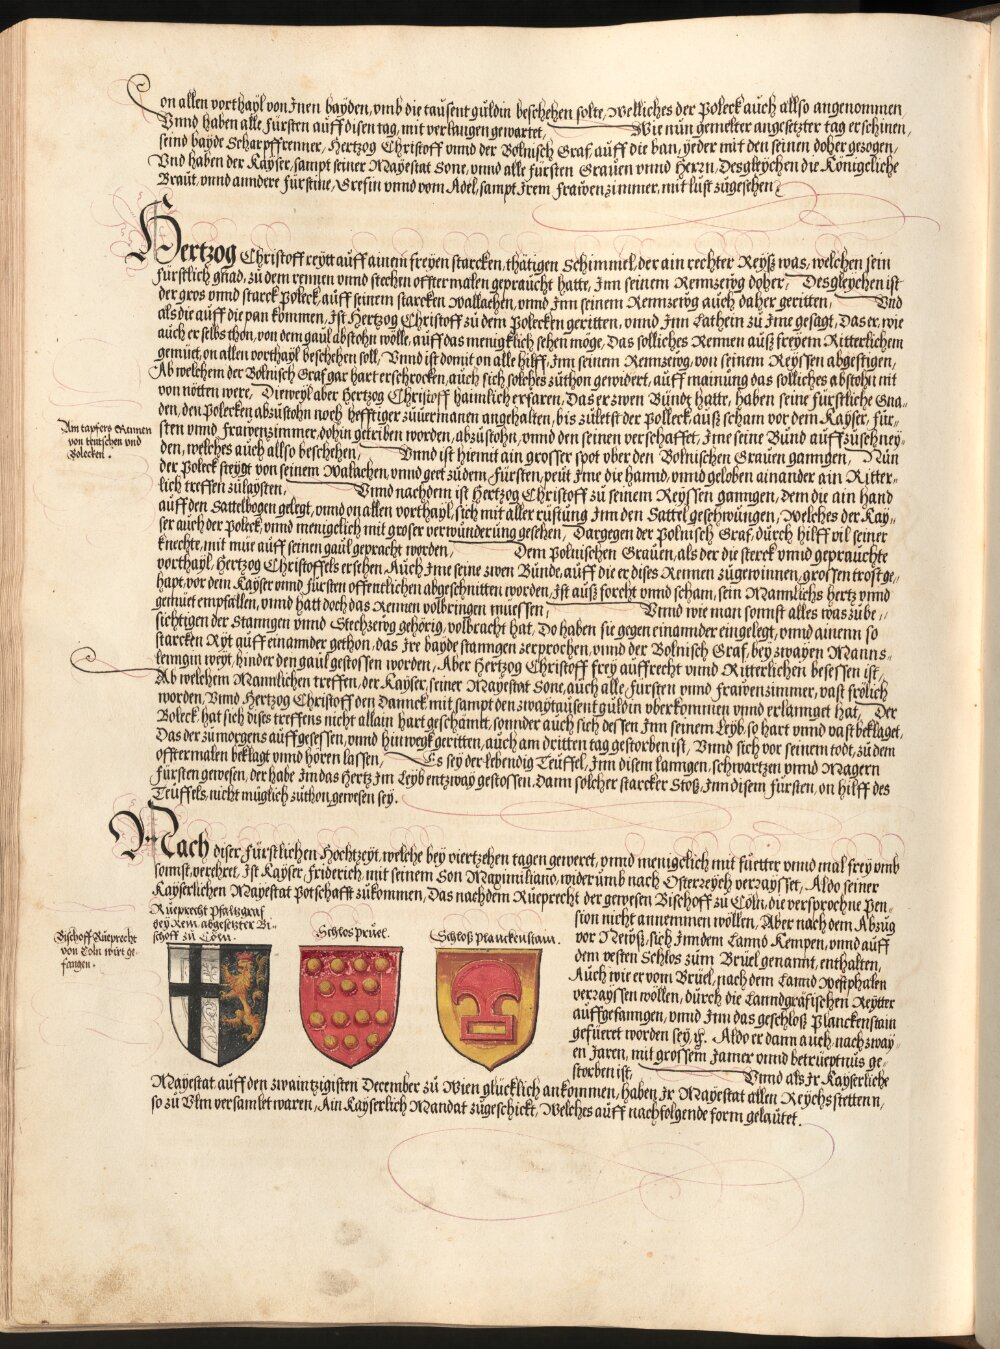 on allen vorthayl von Jnen bayden, vmb die tausent guldin beschehen solte, Welliches der Poleck auch allso angenommen
Vnnd haben alle Fürsten auff disen tag, mit verlangen gewartet, Wie nün gemelter angesetzter tag erschinen,
seind bayde Scharpffrenner, Hertzog Christoff vnnd der Bolnisch Graf, auff die ban, yeder mit den seinen doher gezogen,
Vnd haben der Kayser, sampt seiner Mayestat Sone, vnnd alle Fürsten Grauen vnnd Herrn, Desgleychen die Königeliche
Braüt, vnnd anndere Fürstine, Grefin vnnd vom Adel, sampt Jrem Frawenzimmer, mit lust zügesehen,
Hertzog Christoff reytt auff ainem freyen starcken, thätigen Schimmel, der ain rechter Reyß was, welchen sein
fürstlich gnad, zü dem rennen vnnd stechen offtermalen gepraucht hatte, Jnn seinem Rennzewg doher, Desgleychen ist
der gros vnnd starck Poleck, auff seinem starcken Wallachen, vnnd Jnn seinem Rennzewg auch daher geritten, Vnd
als die auff die pan kommen, Jst Hertzog Christoff zü dem Polecken geritten, vnnd Jnn Lathein zü Jme gesagt, Das er, wie
auch er selbs thon, von dem gaül abstohn wölle, auff das menigklich sehen möge, Das solliches Rennen auß freyem Ritterlichem
gemüet, on allen vorthayl beschehen soll, Vnnd ist domit on alle hilff, Jnn seinem Rennzewg, von seinem Reyssen abgestigen,
Ab welchem der Bolnisch Graf gar hart erschrocken, auch sich solches züthon gewidert, auff mainüng das solliches abstohn nit
von nötten were, Dieweyl aber Hertzog Christoff haimlich erfaren, Das er zwen Bündt hatte, haben seine fürstliche Gna-
den, den Polecken abzüstohn noch hefftiger züuermanen angehalten, bis zületst der Polleck, auß scham vor dem Kayser, Für-
sten vnnd Frawenzimmer, dohin getriben worden, abzüstohn, vnnd den seinen verschaffet, Jme seine Bünd auffzüschney-
den, welches auch allso beschehen, Vnnd ist hiemit ain grosser spot vber den Bolnischen Grauen ganngen, Nün
der Poleck steygt von seinem Walachen, vnnd geet zü dem Fürsten, peüt Jme die hannd, vnnd geloben ainander ain Ritter-
lich treffen züläysten, Vnnd nachdem ist Hertzog Christoff zü seinem Reyssen ganngen, dem die ain hand
auff den Sattelbogen gelegt, vnnd on allen vorthayl, sich mit aller rüstüng Jnn den Sattel geschwüngen, Welches der Kay-
ser auch der Poleck, vnnd menigclich mit groser verwünderüng gesehen, Dargegen der Polnisch Graf, dürch hilff vil seiner
knechte, mit müe auff seinen gaül gepracht worden, Dem Polnischen Grauen, als der die sterck vnnd gepraüchte
vorthayl, Hertzog Christoffels ersehen, Auch Jme seine zwen Bünde, auff die er dises Rennen zügewinnen, grossen trost ge-
hapt, vor dem Kayser vnnd Fürsten offentlichen abgeschnitten worden, Jst auß forcht vnnd scham, sein Mannlichs hertz vnnd
gemüet empfallen, vnnd hatt doch das Rennen volbringen müessen, Vnnd wie man sonnst alles was zübe-
sichtigen der Stanngen vnnd Stechzewg gehörig, volbracht hat, Do haben sie gegen einannder eingelegt, vnnd ainenn so
starcken Ryt auff einannder gethon, das Jre bayde stanngen zerprochen, vnnd der Bolnisch Graf, bey zwayen Manns-
lenngin weyt, hinder den gaül gestossen worden, Aber Hertzog Christoff frey auffrecht vnnd Ritterlichen besessen ist,
Ab welchem Mannlichen treffen, der Kayser, seiner Mayestat Sone, auch alle Fürsten vnnd Frawenzimmer, vast frölich
worden, Vnnd Hertzog Christoff den Dannck mit sampt den zwaytausent güldin vberkommen vnnd erlannget hat, Der
Boleck hat sich dises treffens nicht allain hart geschämbt, sonnder auch sich dessen Jnn seinem Leyb, so hart vnnd vast beklaget,
Das der zü morgens auffgesessen, vnnd hinwegk geritten, auch am dritten tag gestorben ist, Vnnd sich vor seinem todt, zü dem
offtermalen beklagt vnnd hören lassen, Es sey der lebendig Teüffel, Jnn disem lanngen, schwartzen vnnd Magern
Fürsten gewesen, der habe Jm das Hertz Jm Leyb entzway gestossen, Dann solcher starcker Stoß, Jnn disem Fürsten, on hilff des
Teüffels, nicht müglich züthon gewesen sey.
Am tapfers Rennen
von teutschen vnd
Polecken.
Nach diser Fürstlichen Hochtzeyt, welche bey viertzehen tagen geweret, vnnd menigclich mit füetter vnnd mal frey vmb
sonnst, verehret, Jst Kayser Friderich, mit seinem Son Maximiliano, widerümb nach Osterreych verraysset, Aldo seiner
Kayserlichen Mayestat Potschafft zükommen, Das nachdem Rüeprecht der gewesen Bischoff zü Cöln, die versprochne Pen-
sion nicht annemmen wöllen, Aber nach dem Abzüg
vor Neüß, sich Jnn dem Lannd Kempen, vnnd auff
dem vesten Schlos züm Brüel genannt, enthalten,
Auch wie er vom Brüel, nach dem Lannd Westphalen
verrayssen wöllen, dürch die Lanndgräfischen Reytter
auffgefanngen, vnnd Jnn das geschloß Planckenstain
gefüeret worden sey, Aldo er dann auch nach zway-
en Jaren, mit grossem Jamer vnnd betrüeptnus ge-
storben ist, Vnnd als Jr Kayserliche
Mayestat auff den zwaintzigisten December zü Wien glücklich ankommen, haben Jr Mayestat allen Reychsstettenn,
so zü Vlm versamlet waren, Ain Kayserlich Mandat zügeschickt, Welches auff nachfolgende form gelaütet.
Bischoff Rüeprecht
von Cöln wirt ge-
fangen.
Rüeprecht Pfaltzgraf
bey Rein abgesetzter Bi-
schoff zü Cöln.
Schlos prüel.
Schloß planckenstain.